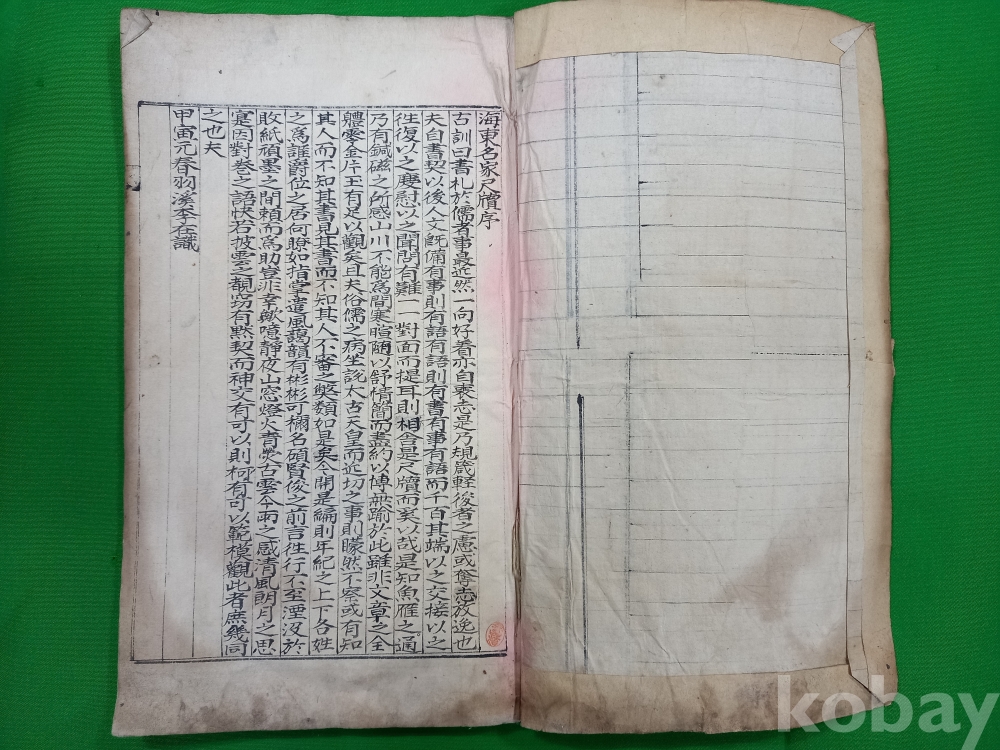 海東名家尺牘序
古訓曰書札於儒者事最近然一向好看亦自喪志是乃規箴輕後者之慮或奪志放逸也
夫自書契以後人文旣備有事則有語有語則有書有事有語而千百其端以之交接以之
往復以之慶慰以之聞問有難一一對面而提耳則相舍是尺牘而奚以哉是知魚雁之通
乃有鍼磁之所感山川不能爲間寒暄隨以舒情簡而盡約以博無踰於此雖非文章之全
體零金片玉有足以觀矣且夫俗儒之病坐說太古天皇而近切之事則矇然不察或有知
其人而不知其書見其書而不知其人不審之弊類如是矣今開是編則年紀之上下各姓
之爲誰爵位之居何瞭如指掌韋風藹韻有彬彬可欄名碩賢俊之前言徃行不至湮沒於
敗紙頑墨之間賴而爲助豈非幸歟噫靜夜山窓燈火靑熒古雲今雨之感淸風朗月之思
寔因對卷之語快若披雲之覩窃有默契而神交有可以則柯有可以範模觀此者庶幾司
之也夫
甲寅元春羽溪李在識
kobay